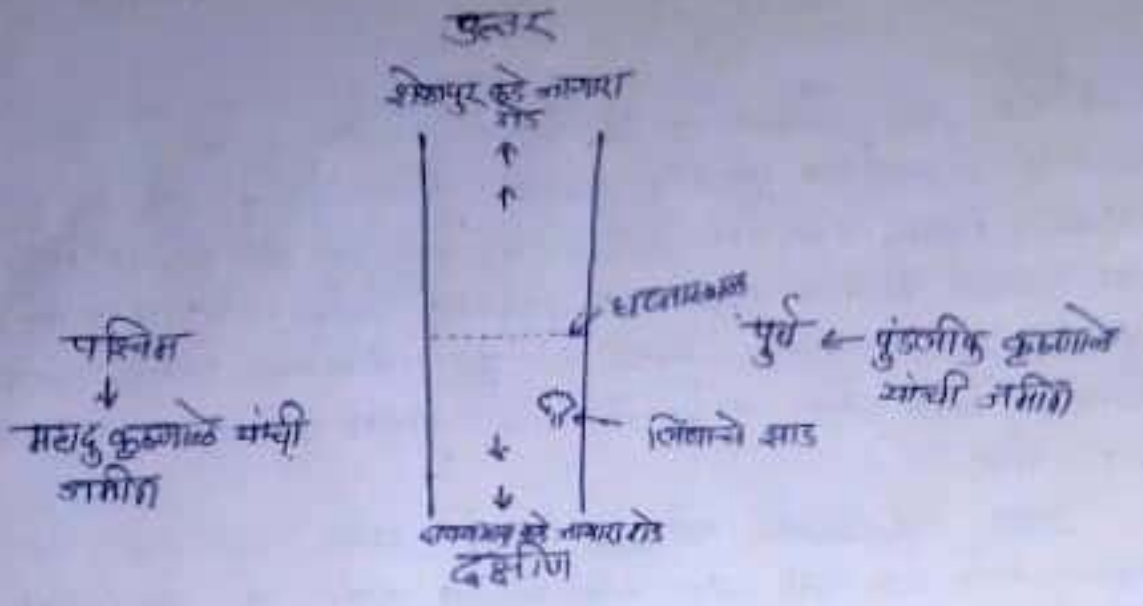 उत्तर
शेकापुर कडे जाणारा
रोड
घटनास्थळ
पश्चिम
महादु कृष्णाळे यांची
जमीन
पुर्व ← पुंडलीक कृष्णाळे
यांची जमीन
लिंबाचे झाड
कडे जाणारा रोड
दक्षीण